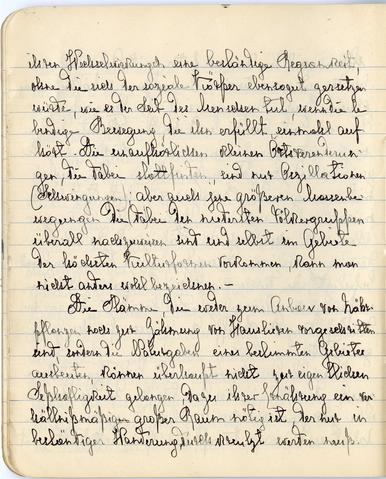 ihren Wechselwirkungen eine beständige Regsamkeit,
ohne die sich der soziale Körper ebensogut zersetzen
würde, wie es der Leib des Menschen tut wenn die le-
bendige Bewegung, die ihn erfüllt, einmal auf
hört. Die unaufhörlichen kleinen Ortsveränderun
gen, die dabei stattfinden, sind nur Oszillationen
(Schwingungen); aber auch jene größeren Massenbe
wegungen die dabei den niedersten Völkergruppen
überall nachzuweisen sind und selbst im Gebiete
der höchsten Kulturformen vorkommen, kann man
nicht anders wohl bezeichnen. —
Die Stämme, die weder zum Anbau von Nähr-
pflanzen noch zur Zähmung von Haustieren vorgeschritten
sind, sondern die Wildgaben eines bestimmten Gebietes
ausbeuten, können überhaupt nicht zur eigentlichen
Seßhaftigkeit gelangen, da zu ihrer Ernährung ein ver
hältnißmäßig großer Raum nötig ist, der nur in
beständiger Wanderung durchkreuzt werden muß.